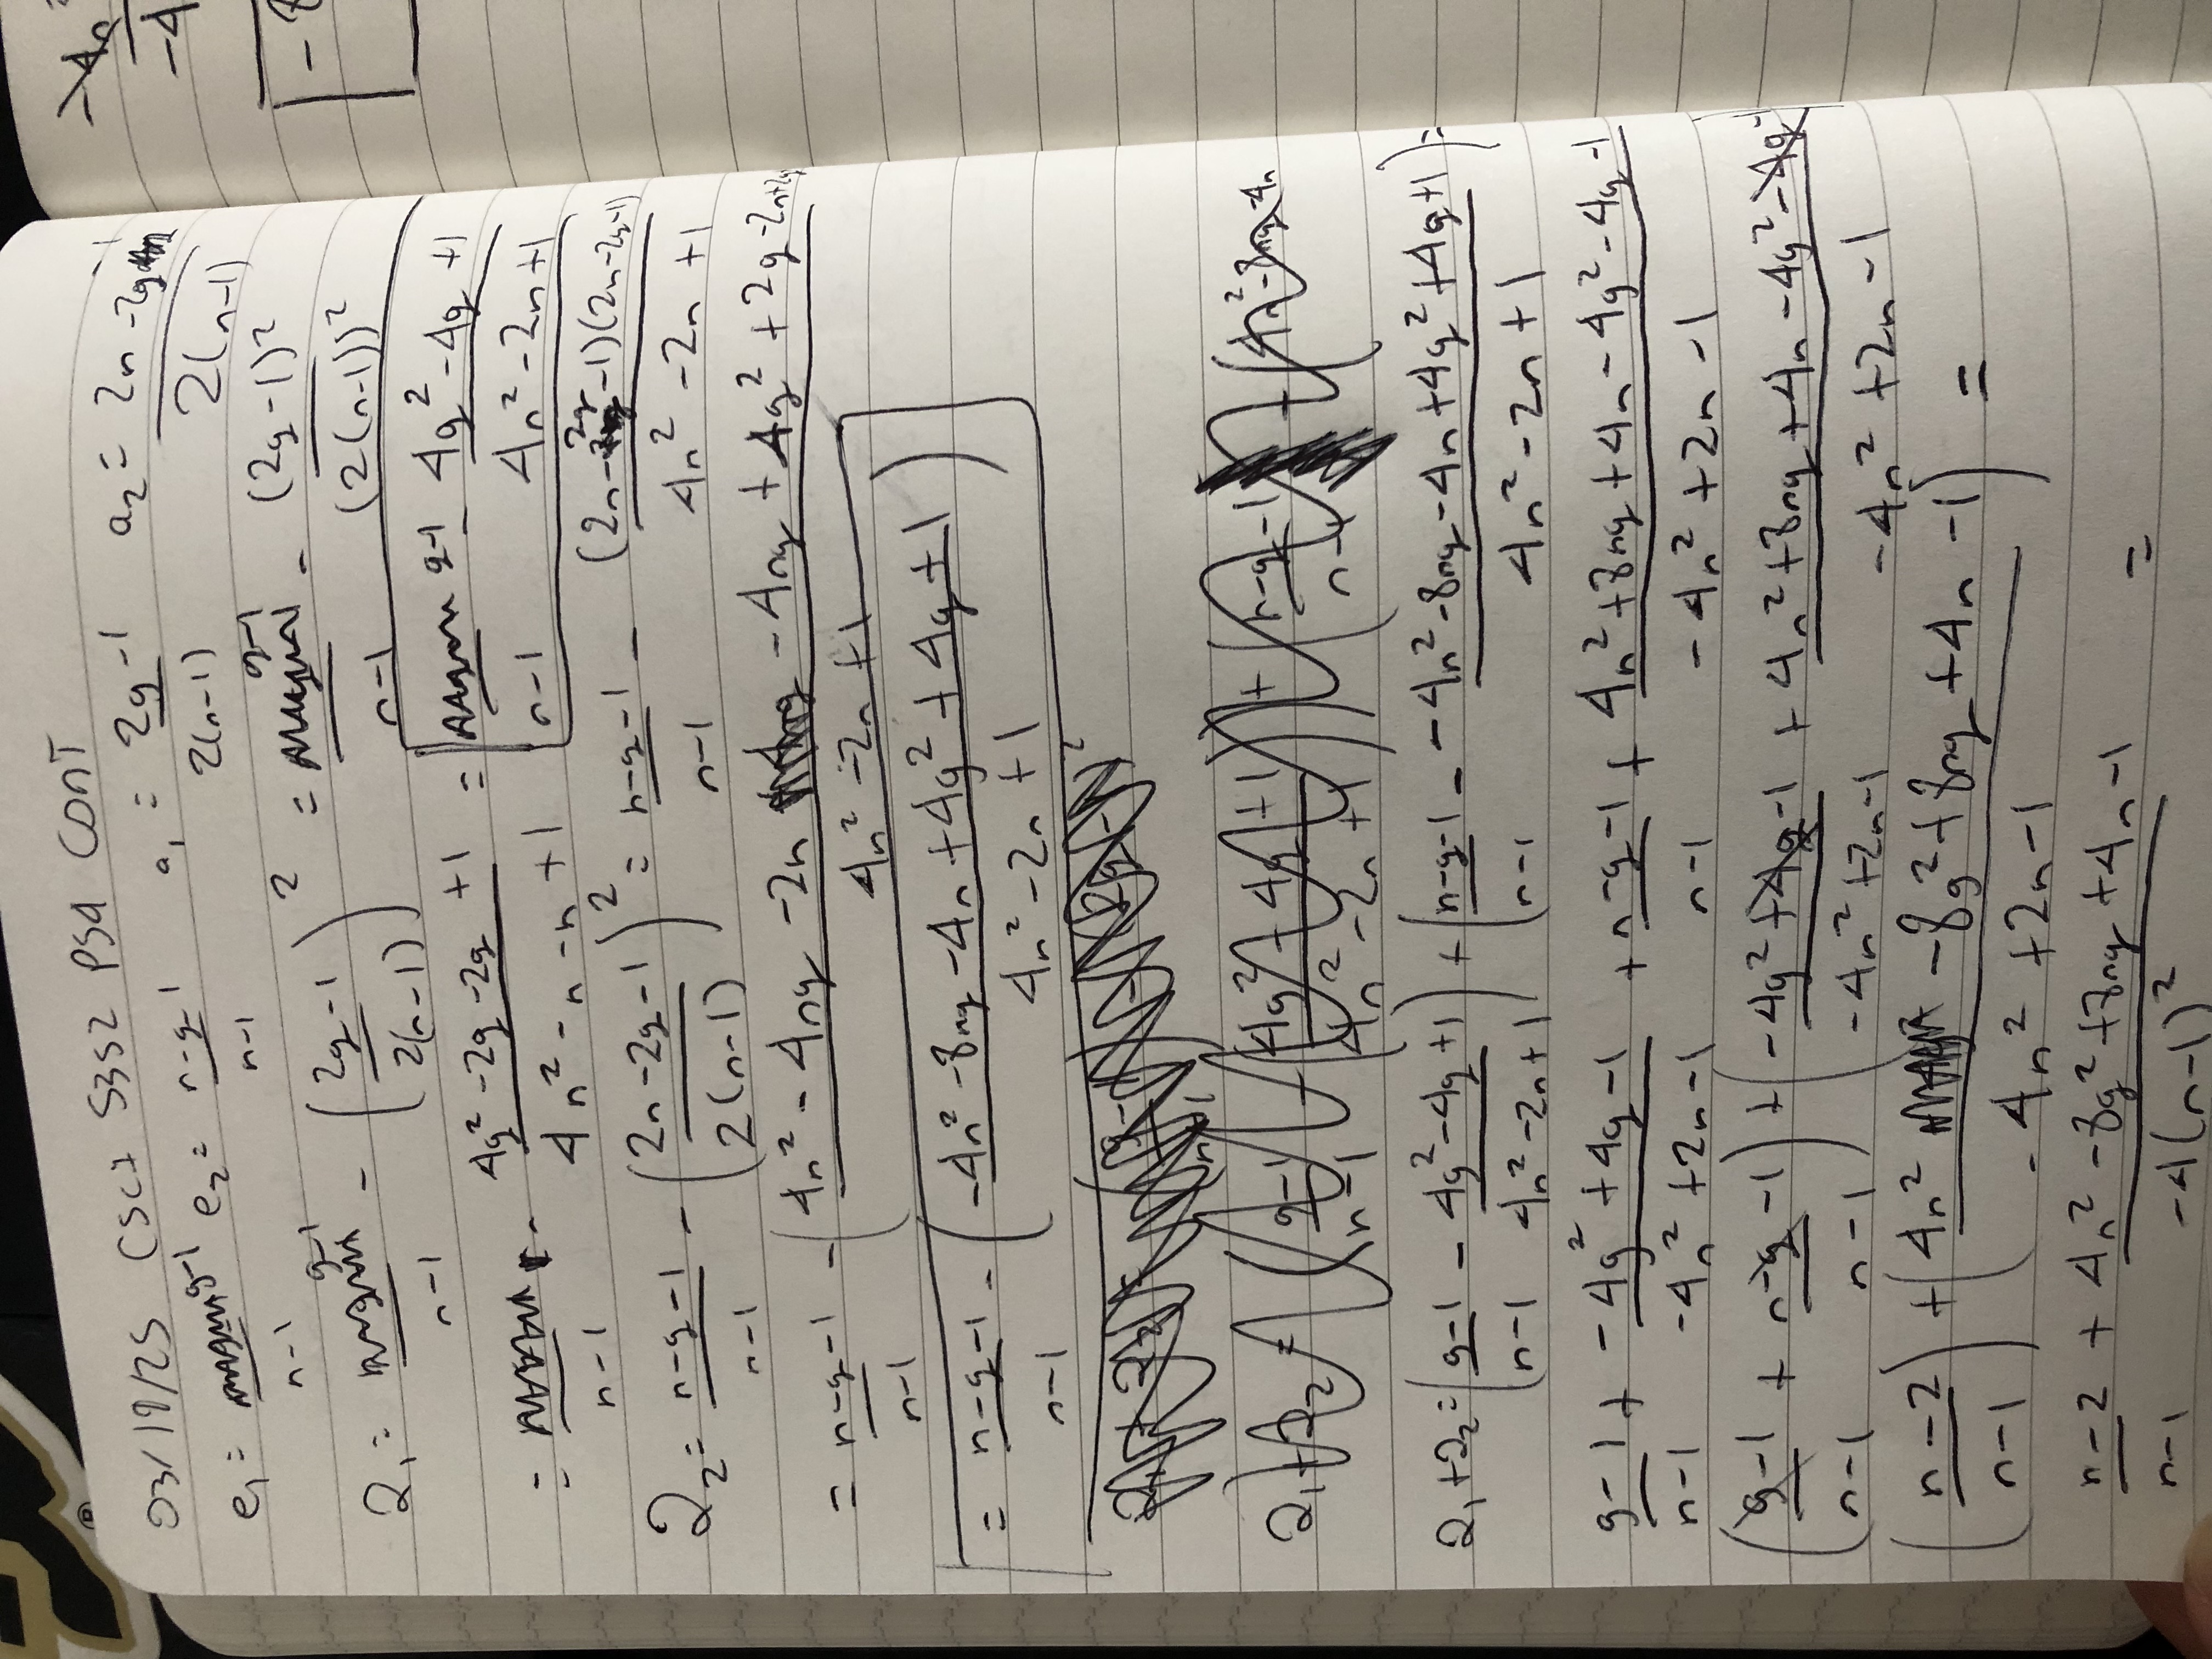 03/19/25 CSCI 5352 PS4 CONT
e₁ = g-1/n-1 e₂ = n-g-1/n-1 a₁ = 2g-1/2(n-1) a₂ = 2n-2g-1/2(n-1)
Q₁ = g-1/n-1 - (2g-1/2(n-1))² = g-1/n-1 - (2g-1)²/(2(n-1))²
= /n-1 - 4g²-2g-2g+1/4n²-n-n+1 = g-1/n-1 - 4g²-4g+1/4n²-2n+1
Q₂ = n-g-1/n-1 - (2n-2g-1/2(n-1))² = n-g-1/n-1 - (2n-2g-1)(2n-2g-1)/4n²-2n+1
= n-g-1/n-1 - (4n²-4ng-2n-4ng+4g²+2g-2n+2g/4n²-2n+1
= n-g-1/n-1 - (-4n²-8ng-4n+4g²+4g+1/4n²-2n+1)
Q₁+Q₂ = (g-1/n-1 - (4g²-4g+1/4n²-2n+1)) + (n-g-1/n-1 - (4n²-8ng-4n
Q₁+Q₂ = (g-1/n-1 - 4g²-4g+1/4n²-2n+1) + (n-g-1/n-1 - -4n²-8ng-4n+4g²+4g+1/4n²-2n+1) =
g-1/n-1 + -4g²+4g-1/-4n²+2n-1 + n-g-1/n-1 + 4n²+8ng+4n-4g²-4g-1/-4n²+2n-1
(g-1/n-1 + n-g-1/n-1) + (-4g²+4g-1/-4n²+2n-1 + 4n²+8ng+4n-4g²-4g-1/-4n²+2n-1
(n-2/n-1) + (4n²-8g²+8ng+4n-1/-4n²+2n-1) =
n-2/n-1 + 4n²-8g²+8ng+4n-1/-4(n-1)² =
-4n
-4
-8
®